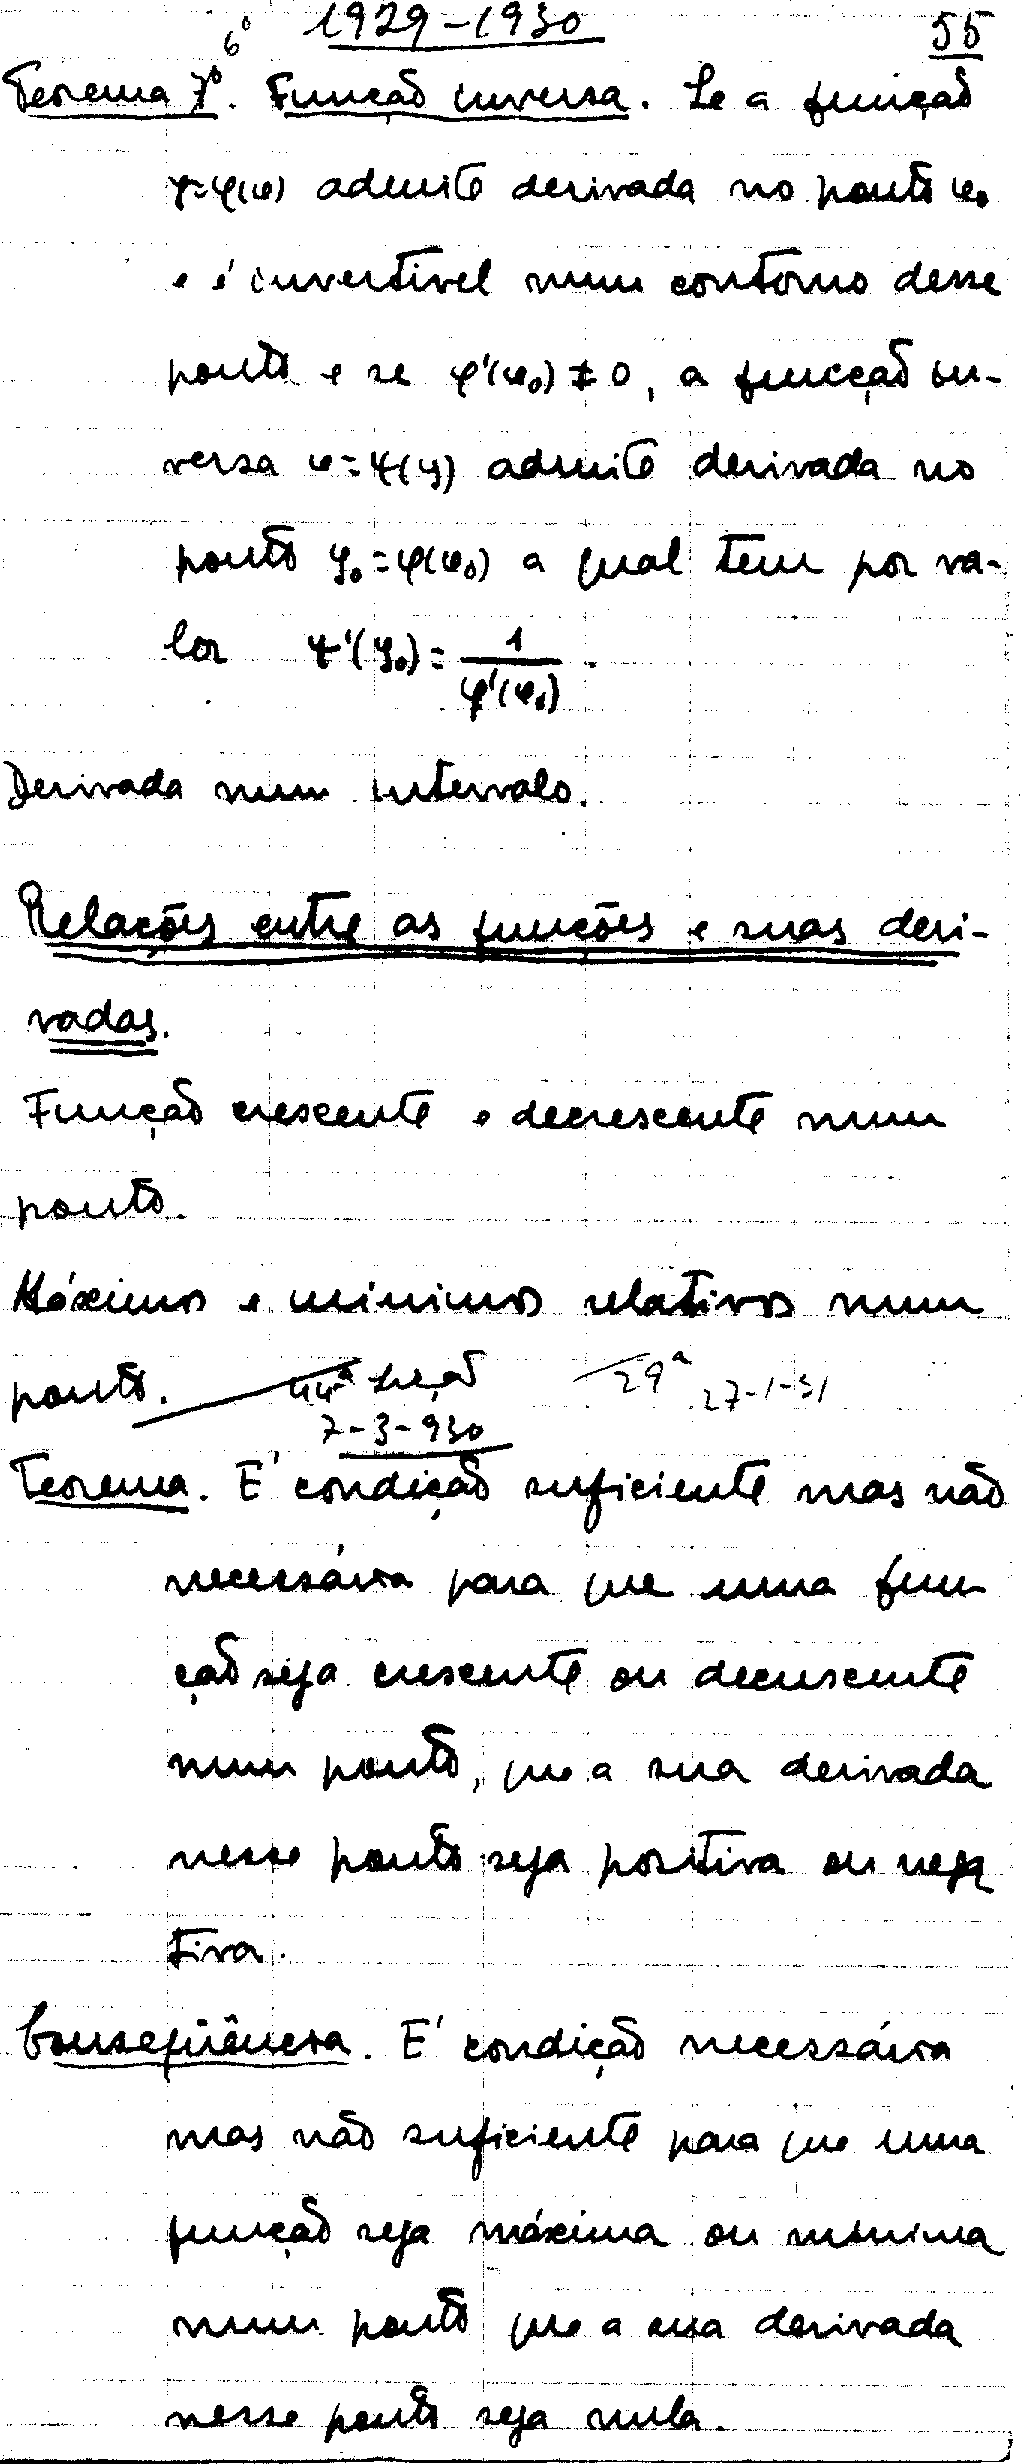 1929-1930 55
6º
Teorema 7º. Função inversa. Se a função
y=φ(x) admite derivada no ponto x₀
e é invertível num contorno desse
ponto e se φ'(x₀) ≠ 0, a funcção in-
versa x=ψ(y) admite derivada no
ponto y₀=φ(x₀) a qual tem por va-
lor ψ'(y₀) = 1/φ'(x₀).
Derivada num intervalo.
Relações entre as funções e suas deri-
vadas.
Função crescente e decrescente num
ponto.
Máximos e mínimos relativos num
ponto. 44ª Lição 29ª 27-1-31
7-3-930
Teorema. E' condição suficiente mas não
necessária para que uma fun
ção seja crescente ou decrescente
num ponto, que a sua derivada
nesse ponto seja positiva ou nega
tiva.
Conseqüência. E' condição necessária
mas não suficiente para que uma
função seja máxima ou mínima
num ponto que a sua derivada
nesse ponto seja nula.